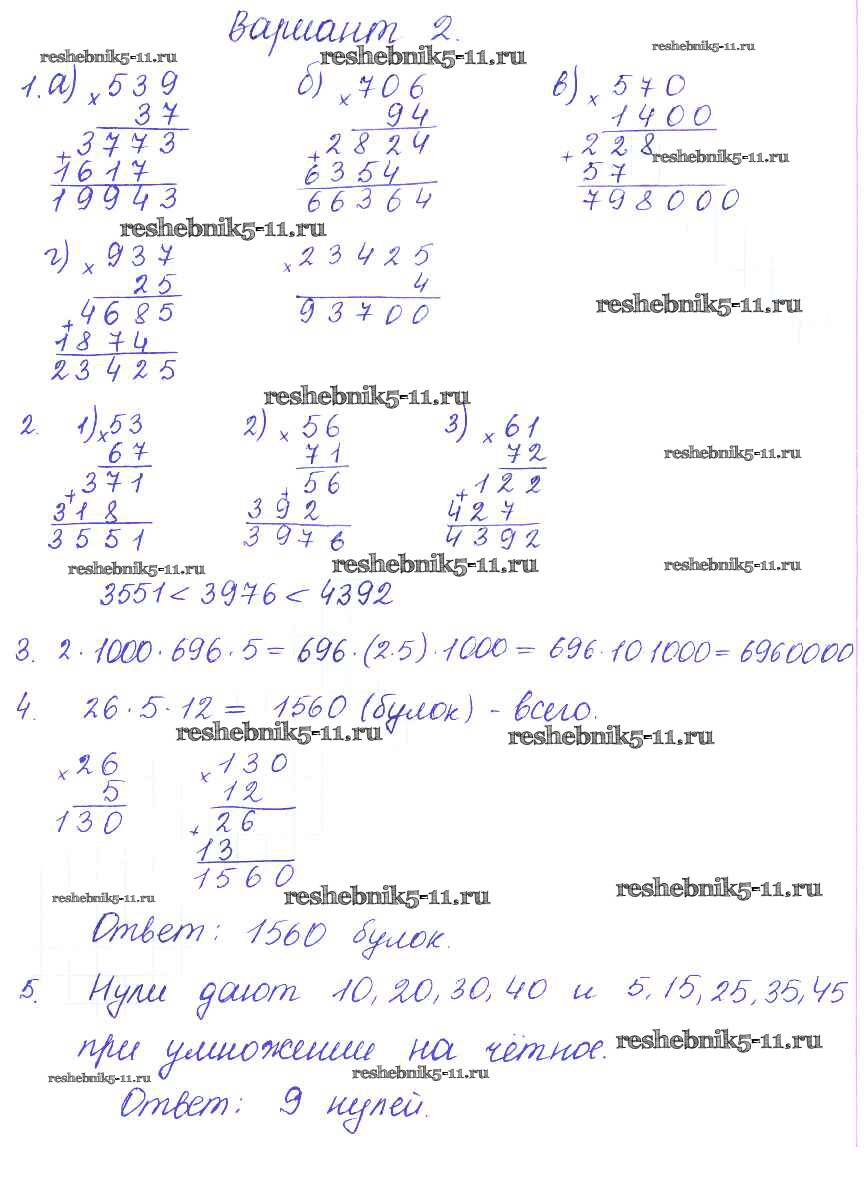 Вариант 2.
reshebnik5-11.ru reshebnik5-11.ru reshebnik5-11.ru
1. а) × 539 б) × 706 в) × 570
37 94 1400
+ 3773 + 2824 + 228
1617 6354 57 reshebnik5-11.ru
19943 66364 798000
reshebnik5-11.ru
г) × 937 × 23425
25 4
+ 4685 93700 reshebnik5-11.ru
1874
23425
reshebnik5-11.ru
2. 1) × 53 2) × 56 3) × 61
67 71 72 reshebnik5-11.ru
+ 371 + 56 + 122
318 392 427
3551 3976 4392
reshebnik5-11.ru reshebnik5-11.ru reshebnik5-11.ru
3551 < 3976 < 4392
3. 2 · 1000 · 696 · 5 = 696 · (2·5) · 1000 = 696 · 10 1000 = 6960000
4. 26 · 5 · 12 = 1560 (булок) - всего.
reshebnik5-11.ru reshebnik5-11.ru
× 26 × 130
5 12
130 + 26
13
1560
reshebnik5-11.ru reshebnik5-11.ru reshebnik5-11.ru
Ответ: 1560 булок.
5. Нули дают 10, 20, 30, 40 и 5, 15, 25, 35, 45
при умножении на чётное. reshebnik5-11.ru
reshebnik5-11.ru reshebnik5-11.ru
Ответ: 9 нулей.